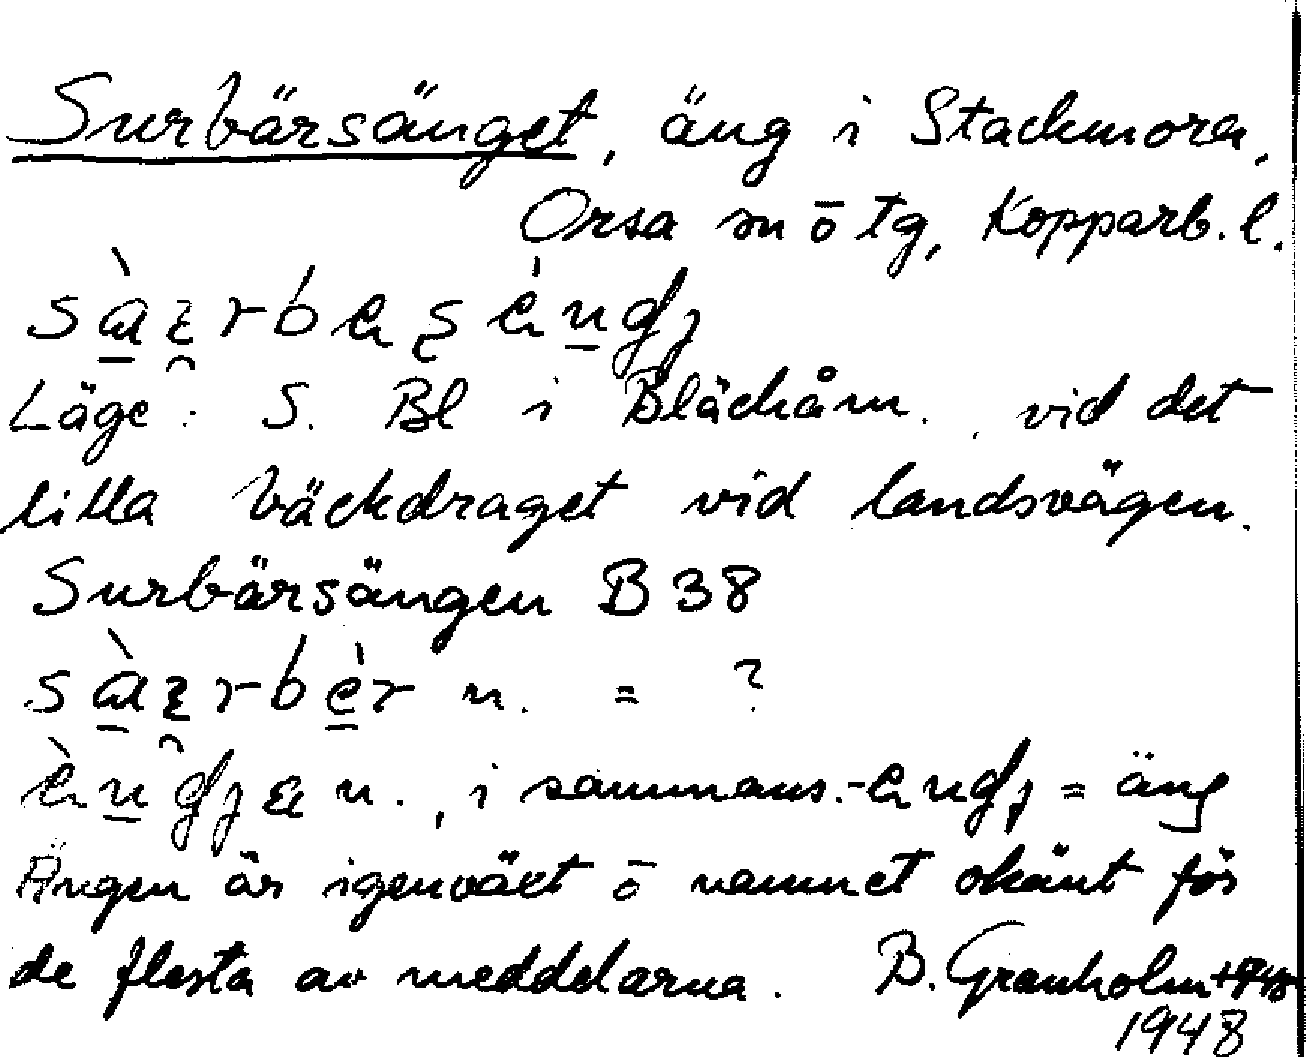 Surbärsänget, äng i Stackmora,
Orsa sn ō tg, Kopparb. l.
Läge: S. Bl i Bläckåm. vid det
lilla bäckdraget vid landsvägen.
Surbärsängen B 38
n. = ?
n., i sammans. = äng
Ängen är igenväxt ō namnet okänt för
de flesta av meddelarna. B. Granholm
1948